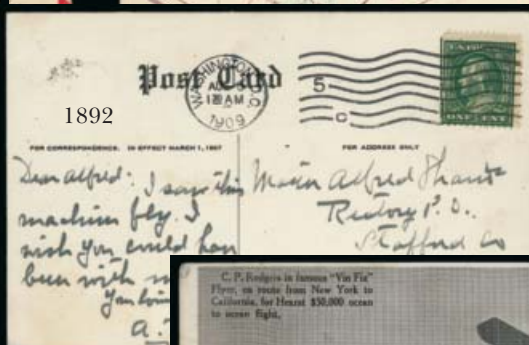 Post Card
WASHINGTON, D.C.
12 AM
1909
5
C
ONE CENT
1892
FOR CORRESPONDENCE. IN EFFECT MARCH 1, 1907
FOR ADDRESS ONLY
Dear Alfred: I saw this
machine fly. I
wish you could hav
been with
A.
Master Alfred
Rectory P.O.
Stafford Co
C. P. Rodgers in famous "Vin Fiz"
Flyer, en route from New York to
California, for Hearst $50,000 ocean
to ocean flight.